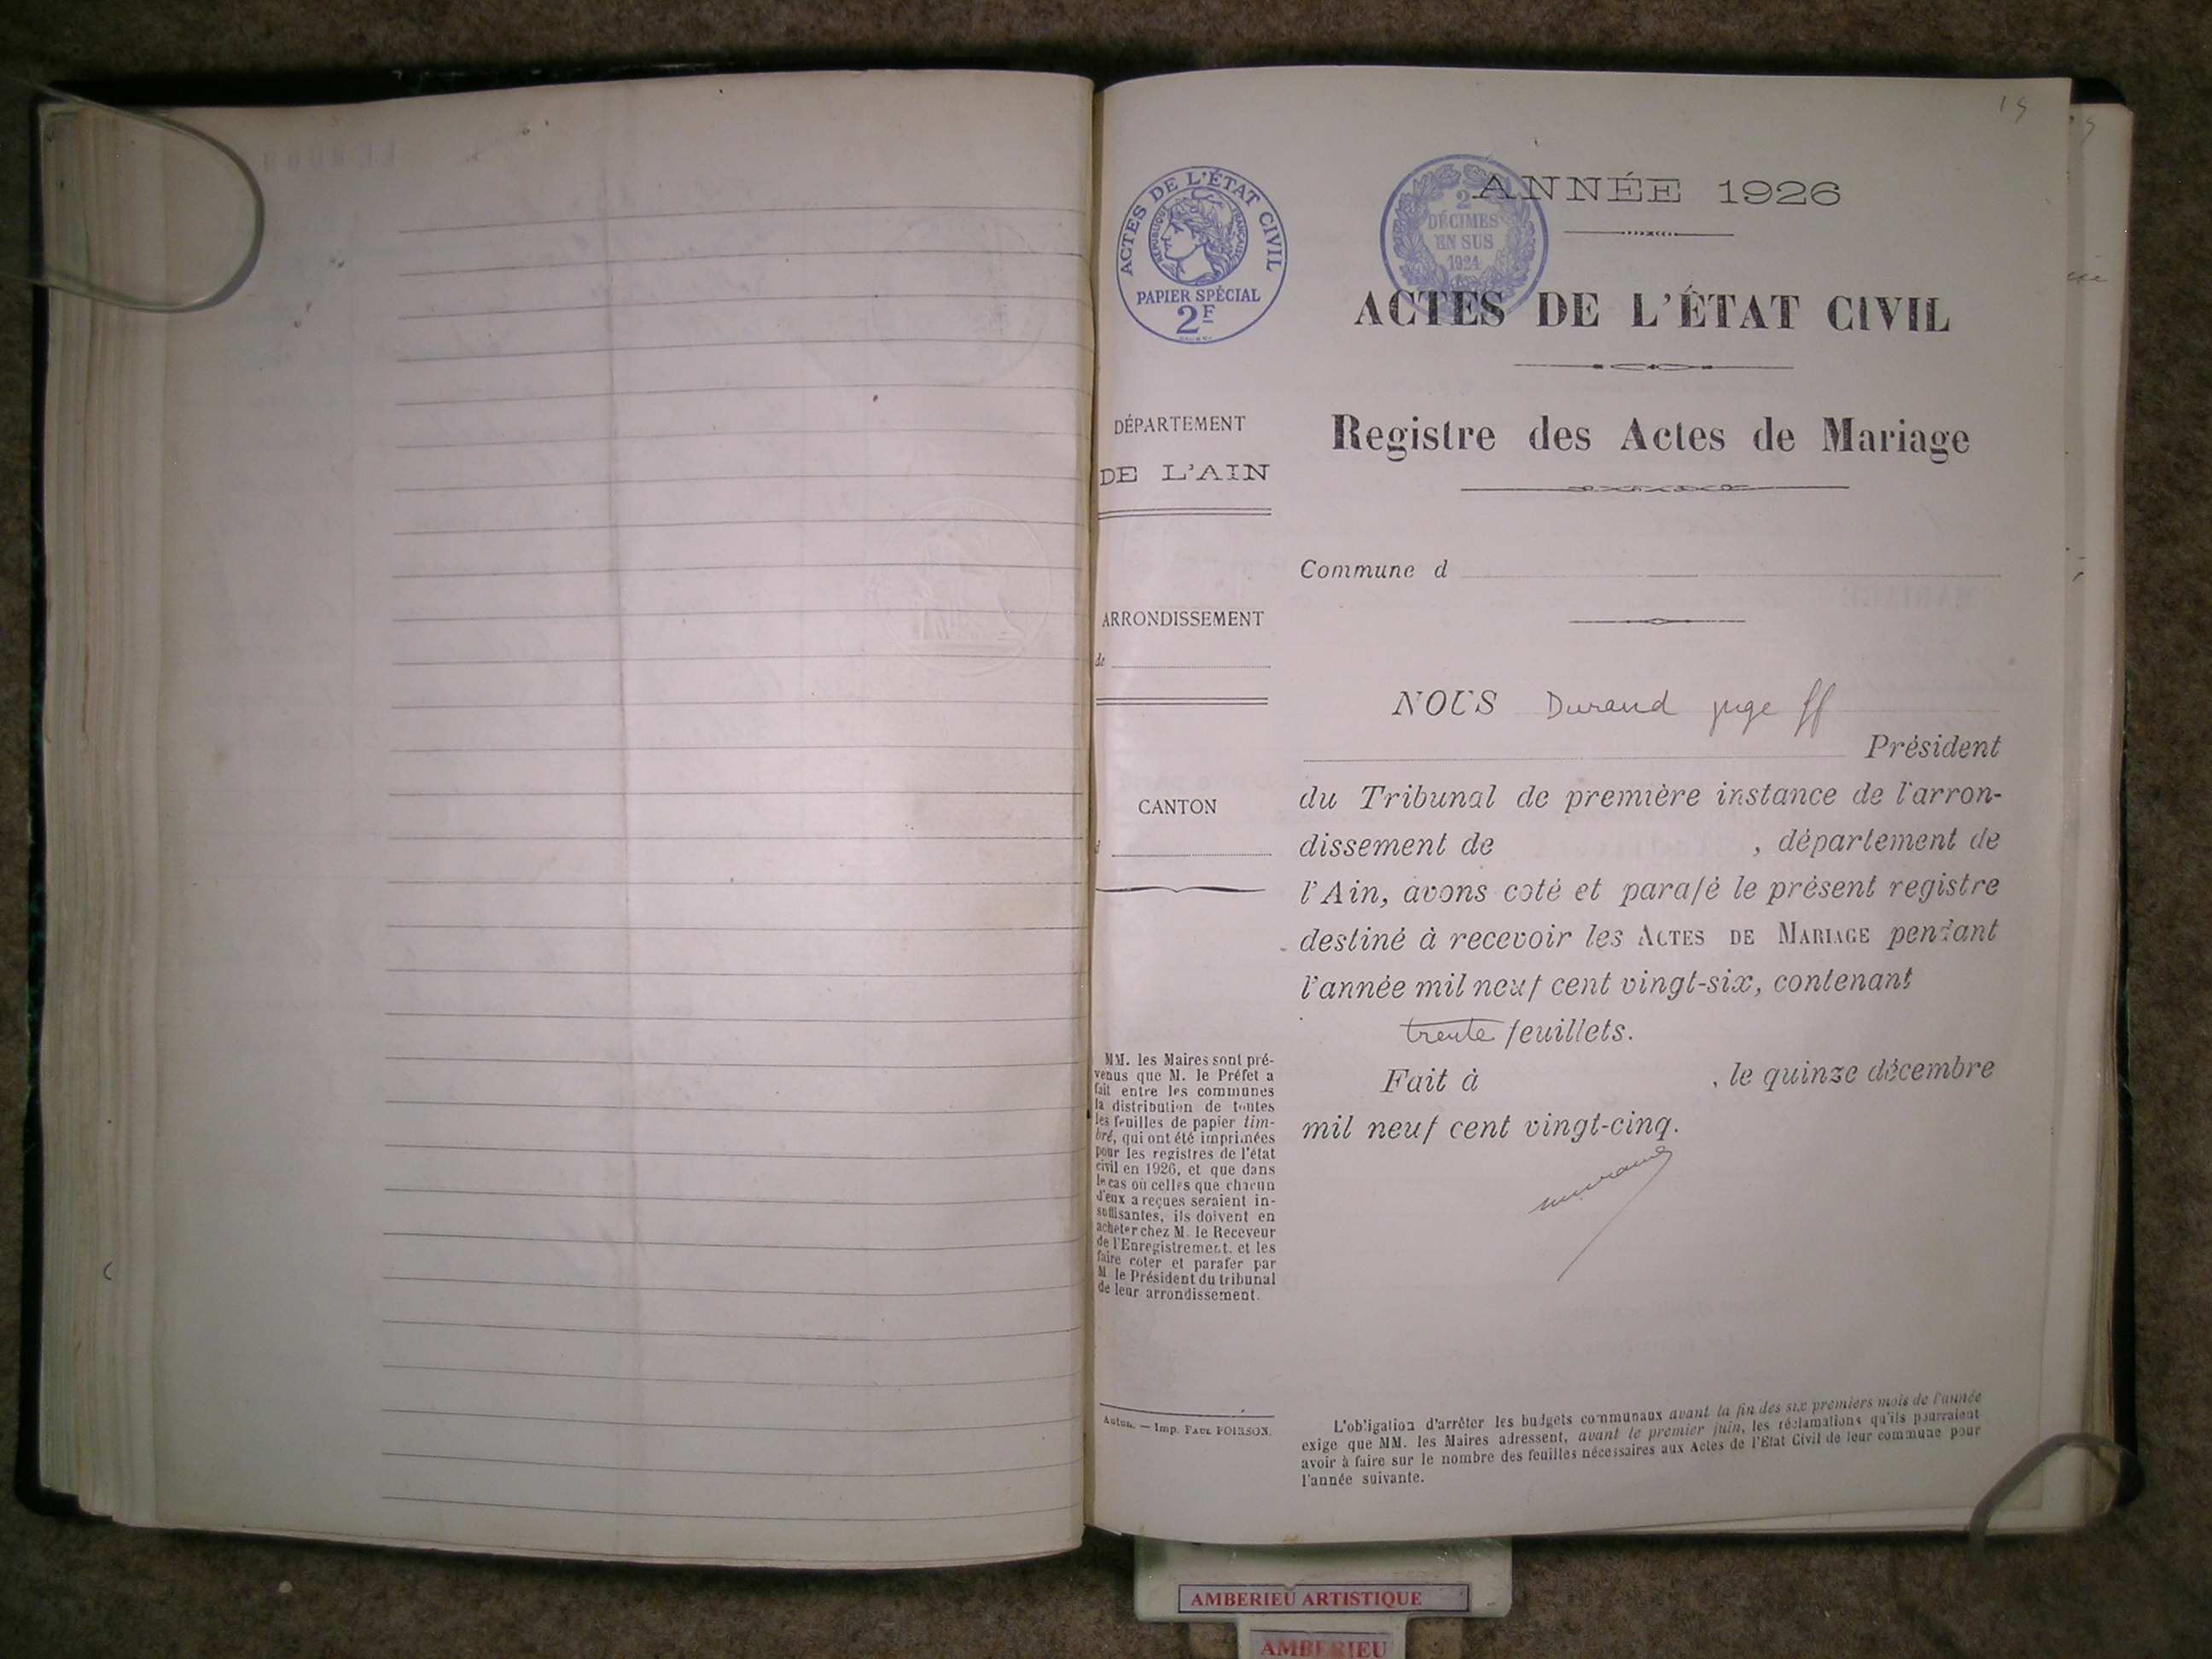 19
ACTES DE L'ÉTAT CIVIL
RÉPUBLIQUE FRANÇAISE
PAPIER SPÉCIAL
2F
2
DÉCIMES
EN SUS
1924
ANNÉE 1926
ACTES DE L'ÉTAT CIVIL
Registre des Actes de Mariage
DÉPARTEMENT
DE L'AIN
ARRONDISSEMENT
de
CANTON
d
MM. les Maires sont pré-
venus que M. le Préfet a
fait entre les communes
la distribution de toutes
les feuilles de papier tim-
bré, qui ont été imprimées
pour les registres de l'état
civil en 1926, et que dans
le cas où celles que chacun
d'eux a reçues seraient in-
suffisantes, ils doivent en
acheter chez M. le Receveur
de l'Enregistrement, et les
faire coter et parafer par
M. le Président du tribunal
de leur arrondissement.
Autun. — Imp. PAUL POIRSON.
Commune d
NOUS Durand juge ff
Président
du Tribunal de première instance de l'arron-
dissement de , département de
l'Ain, avons coté et parafé le présent registre
destiné à recevoir les ACTES DE MARIAGE pendant
l'année mil neuf cent vingt-six, contenant
trente feuillets.
Fait à , le quinze décembre
mil neuf cent vingt-cinq.
L'obligation d'arrêter les budgets communaux avant la fin des six premiers mois de l'année
exige que MM. les Maires adressent, avant le premier juin, les réclamations qu'ils pourraient
avoir à faire sur le nombre des feuilles nécessaires aux Actes de l'Etat Civil de leur commune pour
l'année suivante.
AMBERIEU ARTISTIQUE
AMBERIEU